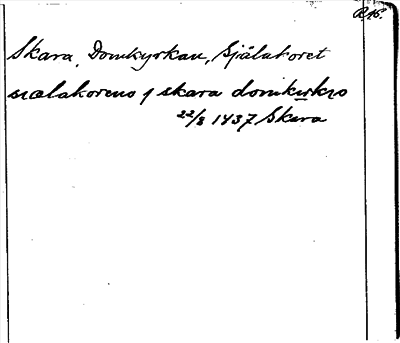 R 16?
Skara, Domkyrkan, Själakoret
siælakoreno j skara domkyrkio
22/8 1437 Skara